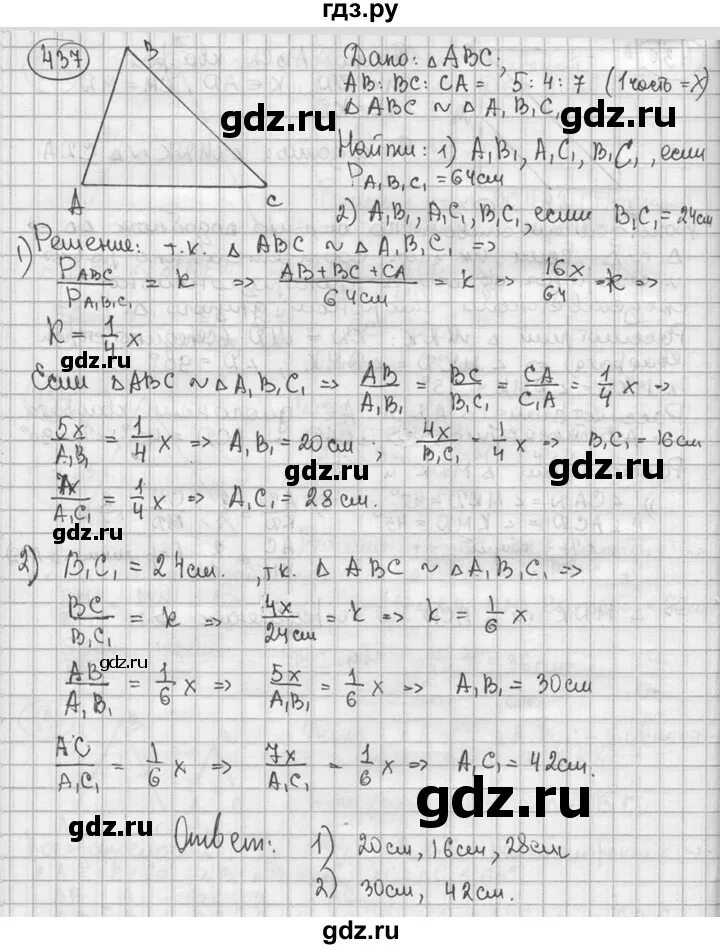 гдз.ру
437
B
A
C
Дано: △ ABC;
AB : BC : CA = 5 : 4 : 7 (1 часть = x)
△ ABC ~ △ A₁B₁C₁
gdz.ru
Найти: 1) A₁B₁, A₁C₁, B₁C₁, если
P A₁B₁C₁ = 64см
2) A₁B₁, A₁C₁, B₁C₁, если B₁C₁ = 24см
1) Решение: т.к. △ ABC ~ △ A₁B₁C₁ =>
P ABC / P A₁B₁C₁ = k => AB + BC + CA / 64см = k => 16x / 64 = k =>
k = 1/4 x
gdz.ru
Если △ ABC ~ △ A₁B₁C₁ => AB / A₁B₁ = BC / B₁C₁ = CA / C₁A = 1/4 x =>
5x / A₁B₁ = 1/4 x => A₁B₁ = 20см ; 4x / B₁C₁ = 1/4 x => B₁C₁ = 16см
gdz.ru
7x / A₁C₁ = 1/4 x => A₁C₁ = 28см.
2) B₁C₁ = 24см. , т.к. △ ABC ~ △ A₁B₁C₁ =>
BC / B₁C₁ = k => 4x / 24см = k => k = 1/6 x
gdz.ru
AB / A₁B₁ = 1/6 x => 5x / A₁B₁ = 1/6 x => A₁B₁ = 30см
AC / A₁C₁ = 1/6 x => 7x / A₁C₁ = 1/6 x => A₁C₁ = 42см.
gdz.ru
gdz.ru
Ответ: 1) 20см, 16см, 28см
2) 30см, 42см.
gdz.ru